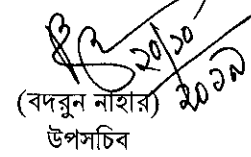 ২০/১০
২০১৯
(বদরুন নাহার)
উপসচিব